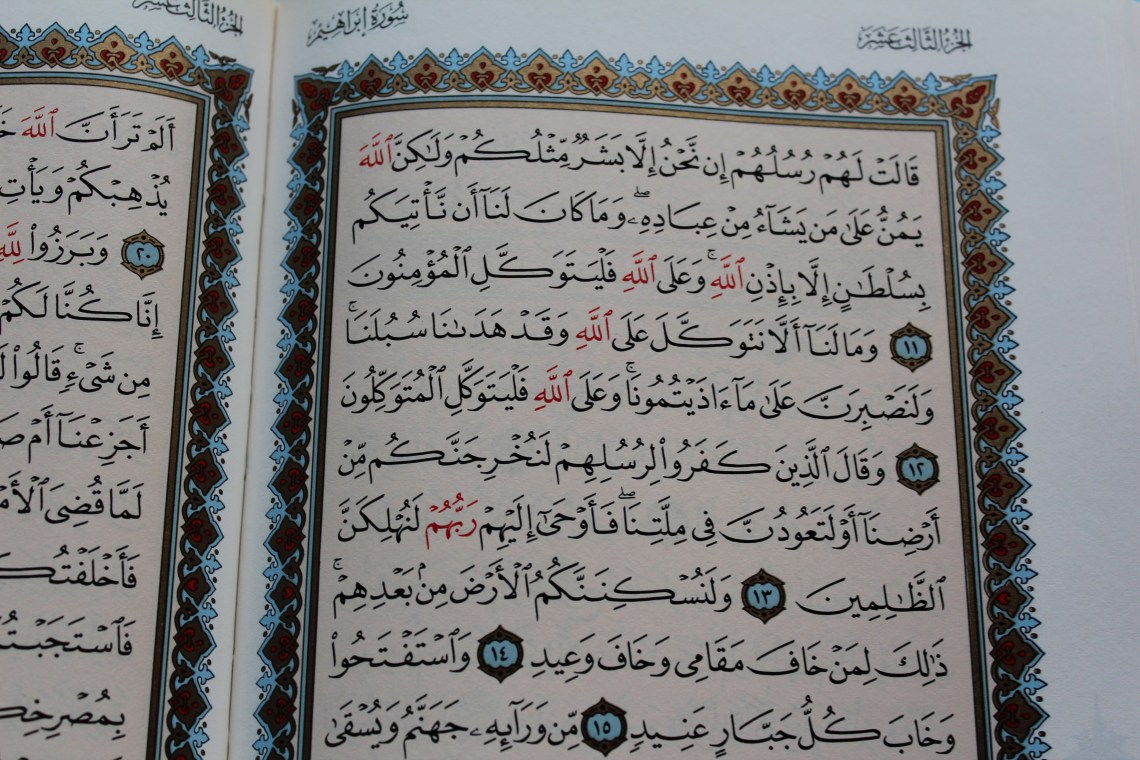 الجزء الثالث عشر
سورة إبراهيم
قَالَتْ لَهُمْ رُسُلُهُمْ إِن نَّحْنُ إِلَّا بَشَرٌ مِّثْلُكُمْ وَلَٰكِنَّ ٱللَّهَ
يَمُنُّ عَلَىٰ مَن يَشَآءُ مِنْ عِبَادِهِۦۖ وَمَا كَانَ لَنَآ أَن نَّأْتِيَكُم
بِسُلْطَٰنٍ إِلَّا بِإِذْنِ ٱللَّهِۚ وَعَلَى ٱللَّهِ فَلْيَتَوَكَّلِ ٱلْمُؤْمِنُونَ
١١ وَمَا لَنَآ أَلَّا نَتَوَكَّلَ عَلَى ٱللَّهِ وَقَدْ هَدَىٰنَا سُبُلَنَاۚ
وَلَنَصْبِرَنَّ عَلَىٰ مَآ ءَاذَيْتُمُونَاۚ وَعَلَى ٱللَّهِ فَلْيَتَوَكَّلِ ٱلْمُتَوَكِّلُونَ
١٢ وَقَالَ ٱلَّذِينَ كَفَرُوا۟ لِرُسُلِهِمْ لَنُخْرِجَنَّكُم مِّنْ
أَرْضِنَآ أَوْ لَتَعُودُنَّ فِى مِلَّتِنَاۖ فَأَوْحَىٰٓ إِلَيْهِمْ رَبُّهُمْ لَنُهْلِكَنَّ
ٱلظَّٰلِمِينَ ١٣ وَلَنُسْكِنَنَّكُمُ ٱلْأَرْضَ مِنۢ بَعْدِهِمْۚ
ذَٰلِكَ لِمَنْ خَافَ مَقَامِى وَخَافَ وَعِيدِ ١٤ وَٱسْتَفْتَحُوا۟
وَخَابَ كُلُّ جَبَّارٍ عَنِيدٍ ١٥ مِّن وَرَآئِهِۦ جَهَنَّمُ وَيُسْقَىٰ
الجزء الثالث عشر
أَلَمْ تَرَ أَنَّ ٱللَّهَ
يُذْهِبْكُمْ وَيَأْتِ
٢٠ وَبَرَزُوا۟ لِلَّهِ
إِنَّا كُنَّا لَكُمْ
مِن شَىْءٍۚ قَالُوا۟
أَجَزِعْنَآ أَمْ
لَمَّا قُضِىَ ٱلْأَمْ
فَأَخْلَفْتُكُ
فَٱسْتَجَبْتُ
بِمُصْرِخِ